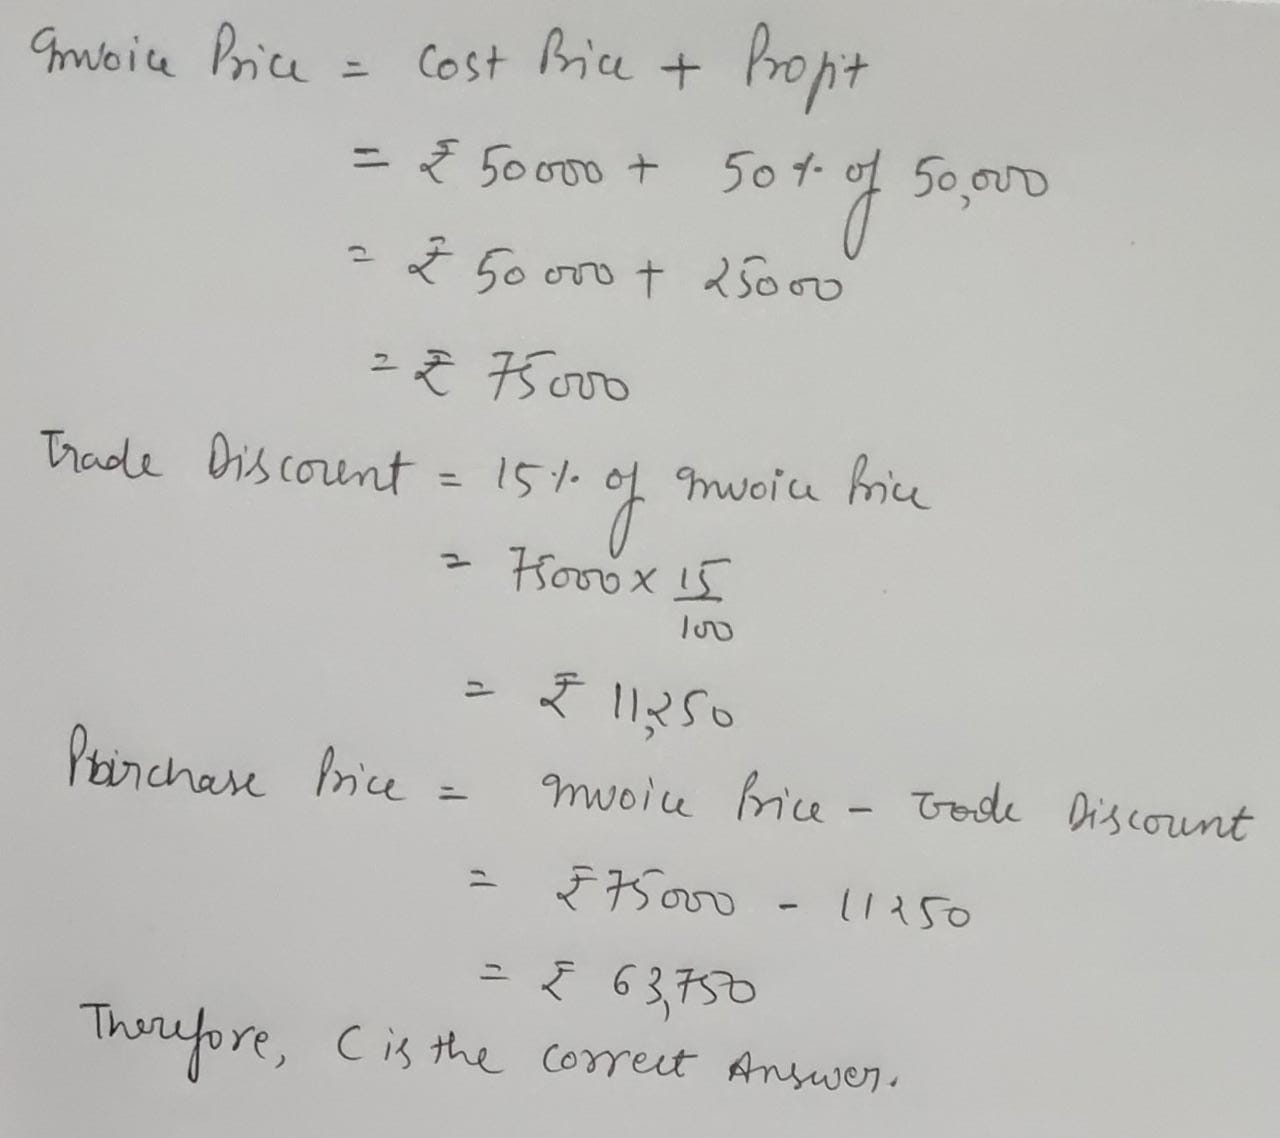 Invoice Price = Cost Price + Profit
= ₹ 50000 + 50% of 50,000
= ₹ 50000 + 25000
= ₹ 75000
Trade Discount = 15% of Invoice Price
= 75000 × 15/100
= ₹ 11,250
Purchase Price = Invoice Price - Trade Discount
= ₹75000 - 11250
= ₹ 63,750
Therefore, C is the correct Answer.